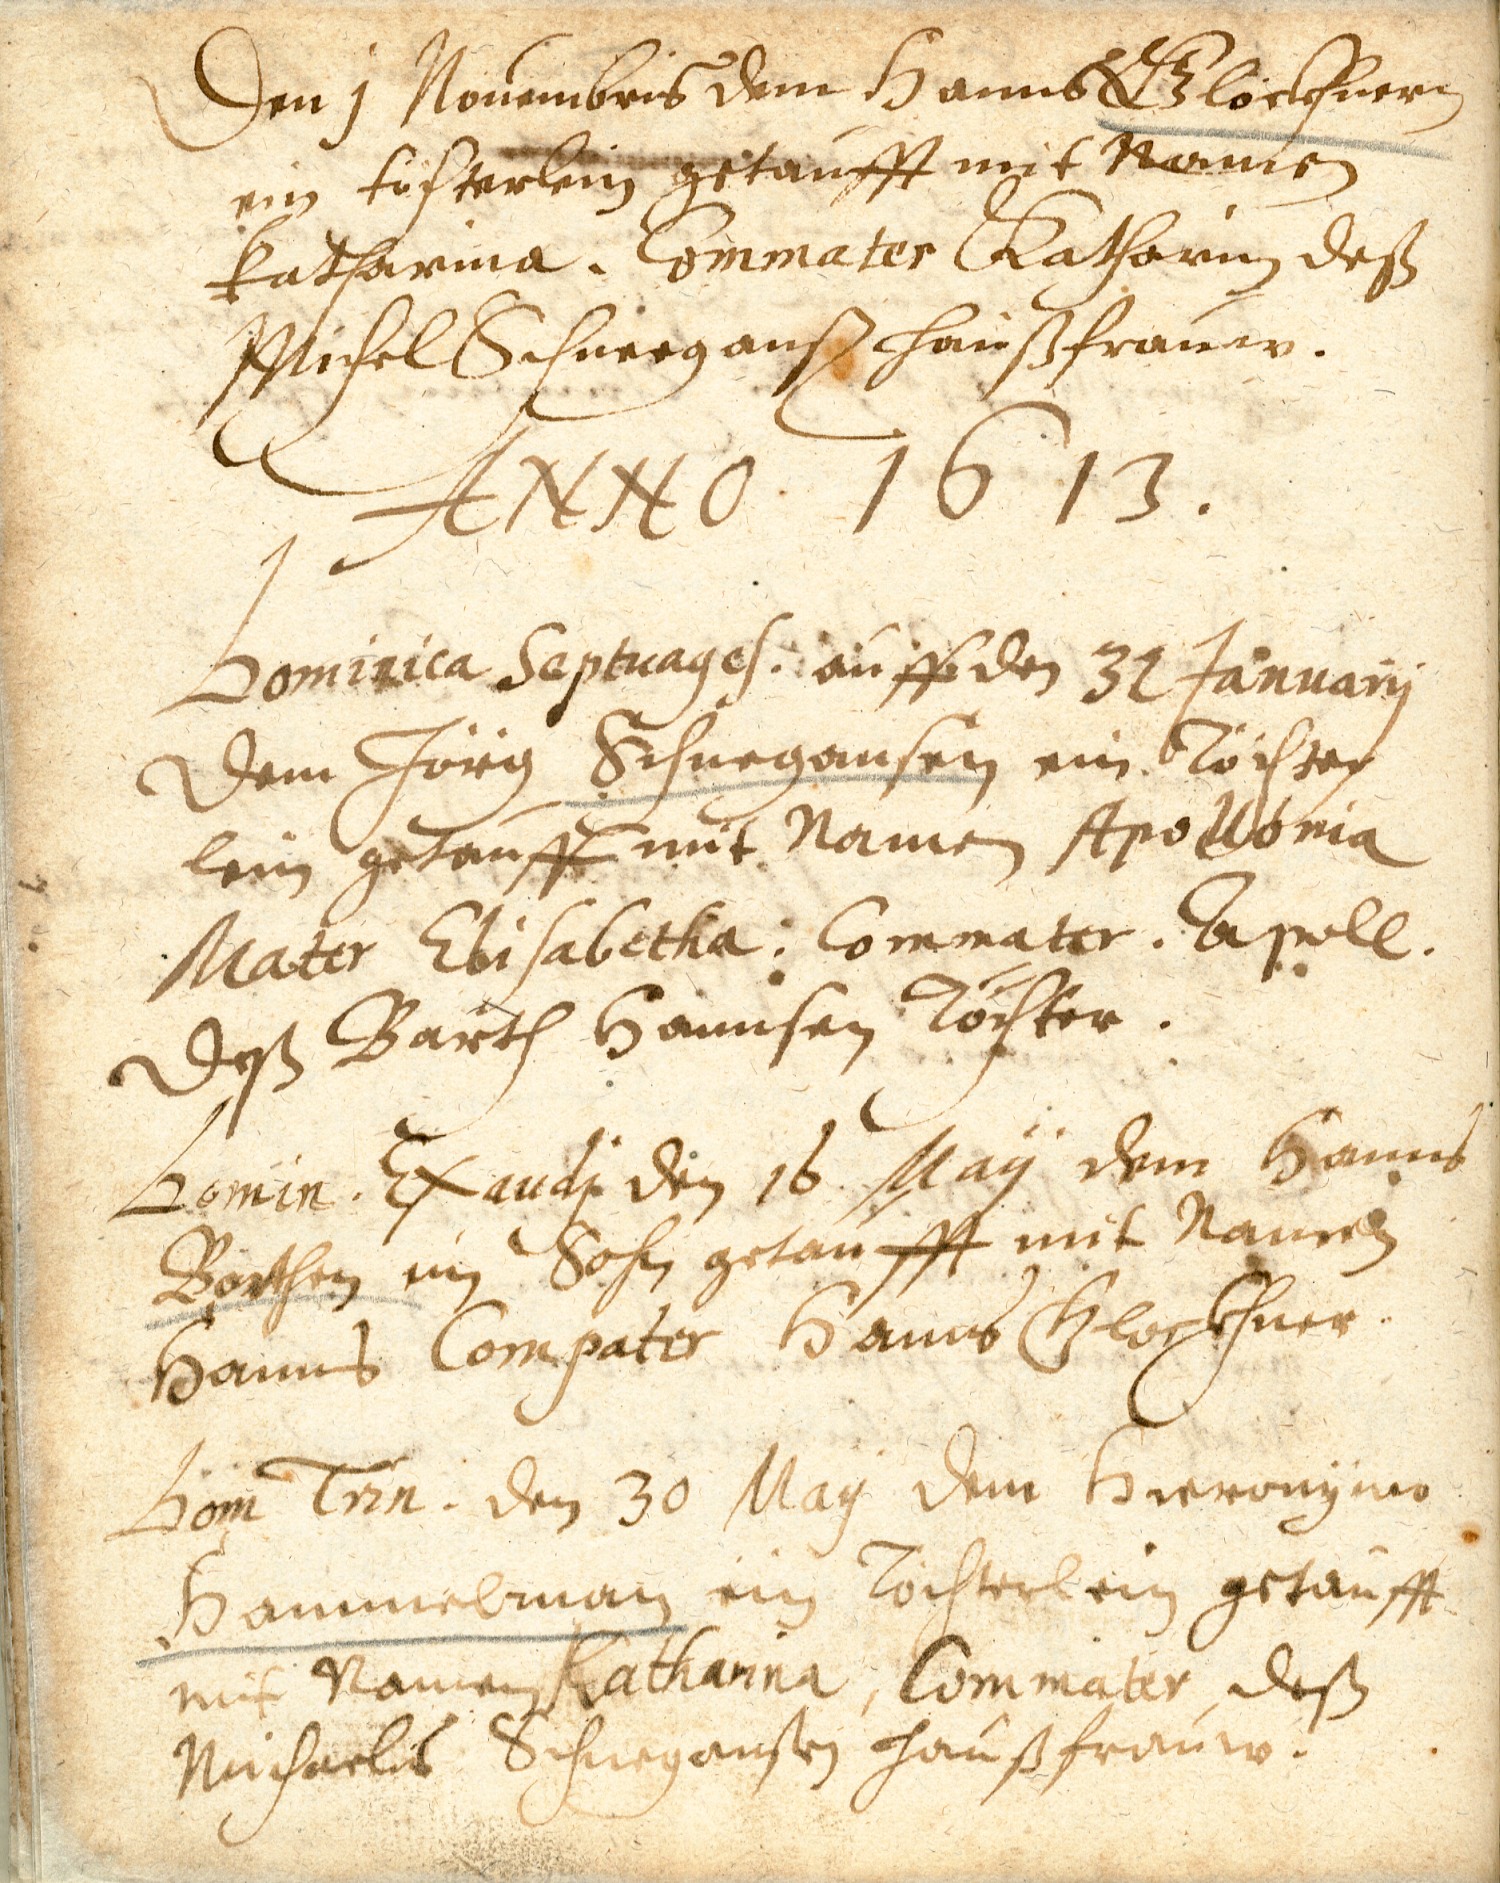 Den 1 Nouembris dem Hanns Glöckhnern
ein töchterlein getaufft mit Namen
Katharina. Commater Katharin deß
Michel Schneegansß haußfrauw.
ANNO 1613.
Dominica Septuages. auff den 31 Januarij
dem Jörg Schnegansen ein Töchter
lein getaufft mit Namen Apollonia
Mater Elisabetha: Commater. Apoll.
deß Barth Hannsen Tochter.
Domin. Exaudj den 16 Maij dem Hanns
Barthen ein Sohn getaufft mit Namen
Hanns Compater Hanns Glockhner.
Dom Trin. den 30 Maij dem Hieronymo
Hammelman ein Töchterlein getaufft
mit Namen Katharina, Commater, deß
Michaels Schneganßen haußfrauw.